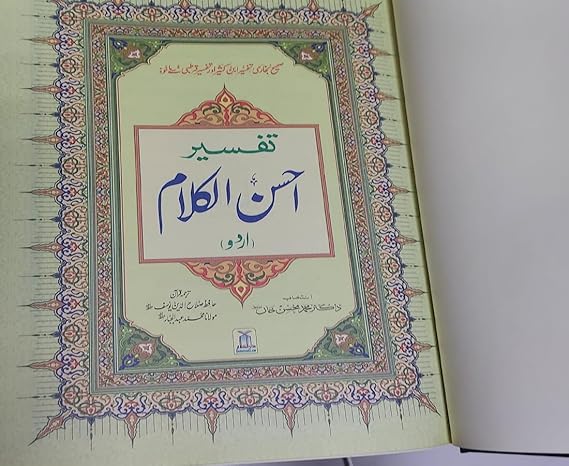 صحیح بخاری، تفسیر ابن کثیر اور تفسیر قرطبی سے ماخوذ
تفسیر
احسن الکلام
(اردو)
انتخاب
ڈاکٹر محمد محسن خان
ترجمہ قرآن
حافظ صلاح الدین یوسف
مولانا محمد عبدالجبار
دارالسلام